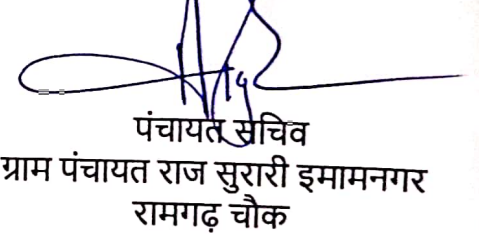 पंचायत सचिव
ग्राम पंचायत राज सुरारी इमामनगर
रामगढ़ चौक